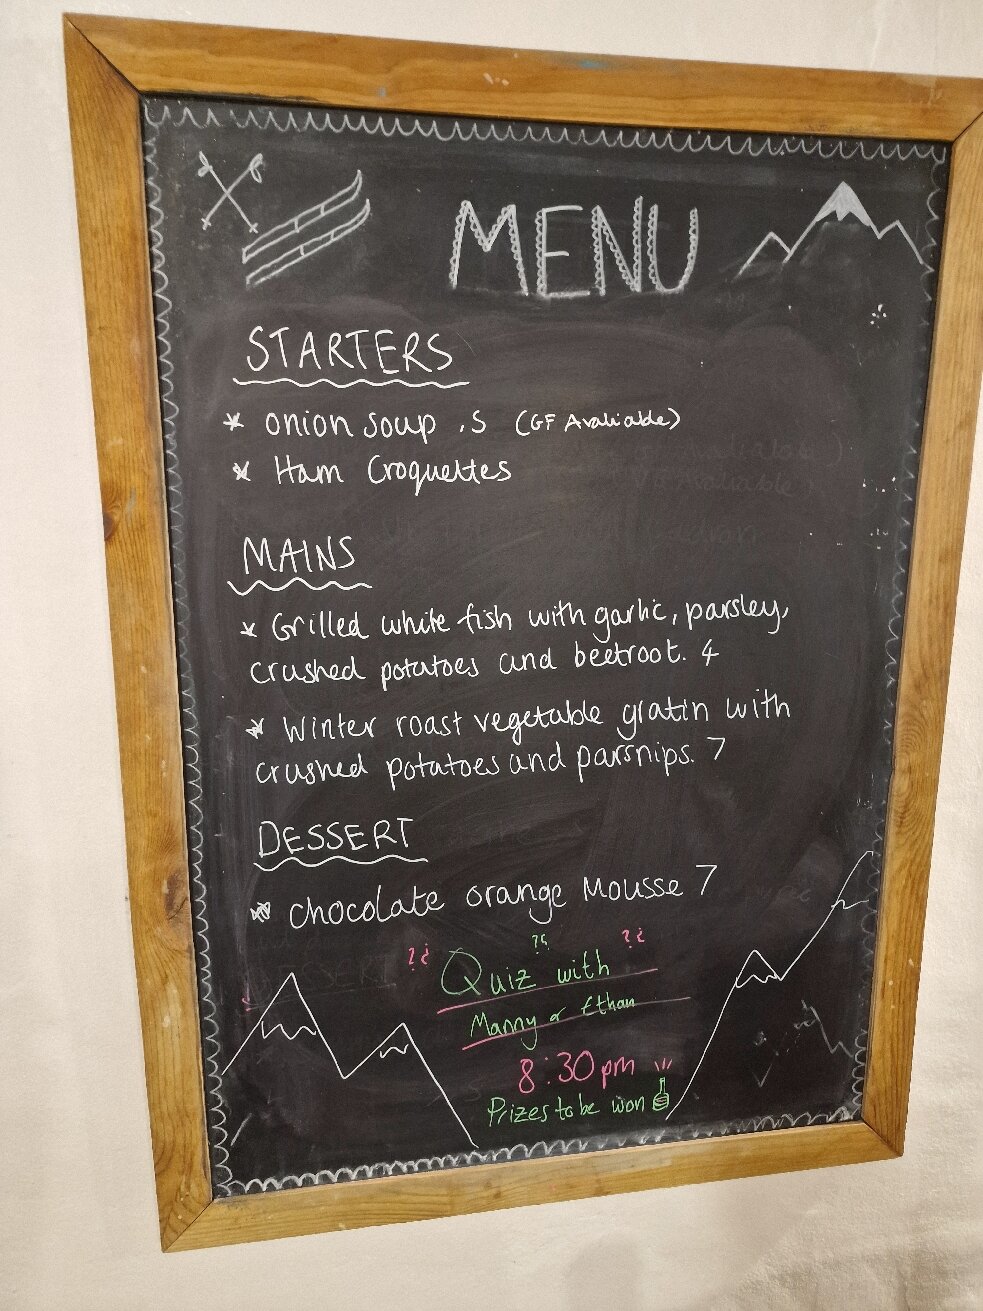 MENU
STARTERS
* onion soup .5 (GF Avaliable)
* Ham Croquettes
MAINS
* Grilled white fish with garlic, parsley,
crushed potatoes and beetroot. 4
* Winter roast vegetable gratin with
crushed potatoes and parsnips. 7
DESSERT
* chocolate orange Mousse 7
Quiz with
Manny or Ethan
8:30pm
Prizes to be won